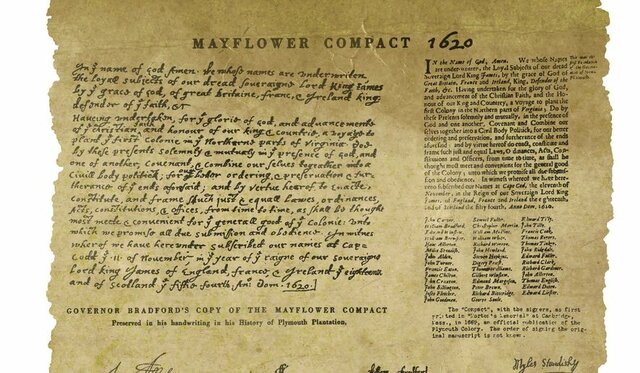 MAYFLOWER COMPACT 1620
In yᵉ name of god Amen. We whose names are underwriten,
the loyall subjects of our dread soveraigne Lord King James
by yᵉ grace of god, of great britaine, franc, & Ireland king,
defendor of yᵉ faith, &c
Haveing undertaken, for yᵉ glorie of god, and advancemente
of yᵉ christian faith and honour of our king & countrie, a voyage to
plant yᵉ first Colonie in yᵉ Northerne parts of Virginia. Doe
by these presents solemnly & mutualy in yᵉ presence of god, and
one of another, Covenant, & Combine our selves togeather into a
Civill body politick; for yᵉ better ordering, & preservation & fur
therance of yᵉ ends aforesaid; and by vertue hearof to Enacte,
Constitute, and frame shuch just & equall Lawes, ordinances,
Acts, constitutions, & offices, from time to time, as shall be thought
most meete & convenient for yᵉ generall good of yᵉ Colonie: unto
which we promise all due submission and obedience. In witnes
wherof we have here under subscribed our names at Cape
Codd yᵉ ·11· of November, in yᵉ year of yᵉ raigne of our soveraigne
Lord king James of England, france, & Ireland yᵉ eighteenth
and of Scotland yᵉ fiftie fourth. Ano Dom. 1620.
GOVERNOR BRADFORD'S COPY OF THE MAYFLOWER COMPACT
Preserved in his handwriting in his History of Plymouth Plantation,
IN the Name of God, Amen. We whose Names
are under-written, the Loyal Subjects of our dread
Sovereign Lord King James, by the grace of God of
Great Britain, France and Ireland, King, Defender of the
Faith, &c. Having undertaken for the glory of God,
and advancement of the Christian Faith, and the Ho-
nour of our King and Country, a Voyage to plant the
first Colony in the Northern parts of Virginia; Do
by these Presents solemnly and mutually, in the presence of
God and one another, Covenant and Combine our
selves together into a Civil Body Politick, for our better
ordering and preservation, and furtherance of the ends
aforesaid; and by virtue hereof do enact, constitute and
frame such just and equal Laws, Ordinances, Acts, Con-
stitutions and Officers, from time to time, as shall be
thought most meet and convenient for the general good
of the Colony; unto which we promise all due submis-
sion and obedience. In witness whereof we have here-
unto subscribed our Names at Cape Cod, the eleventh of
November, in the Reign of our Sovereign Lord King
James, of England, France and Ireland the eighteenth,
and of Scotland the fifty fourth, Anno Dom. 1620.
John Carver, Samuel Fuller, Edward Tilly,
William Bradford, Christopher Martin, John Tilly,
Edward Winslow, William Mullins, Francis Cook,
William Brewster, William White, Thomas Rogers,
Isaac Allerton, Richard Warren, Thomas Tinker,
Myles Standish, John Howland, John Ridgdale,
John Alden, Steven Hopkins, Edward Fuller,
John Turner, Degory Priest, Richard Clark,
Francis Eaton, Thomas Williams, Richard Gardiner,
James Chilton, Gilbert Winslow, John Allerton,
John Craxton, Edmund Margeson, Thomas English,
John Billington, Peter Brown, Edward Doten,
Moses Fletcher, Richard Britteridge, Edward Liester.
John Goodman, George Soule,
The "Compact", with the signers, as first
printed in "Morton's Memorial" at Cambridge,
Mass., in 1669, an official publication of the
Plymouth Colony. The order of signing the
original manuscript is not known.
Myles Standish